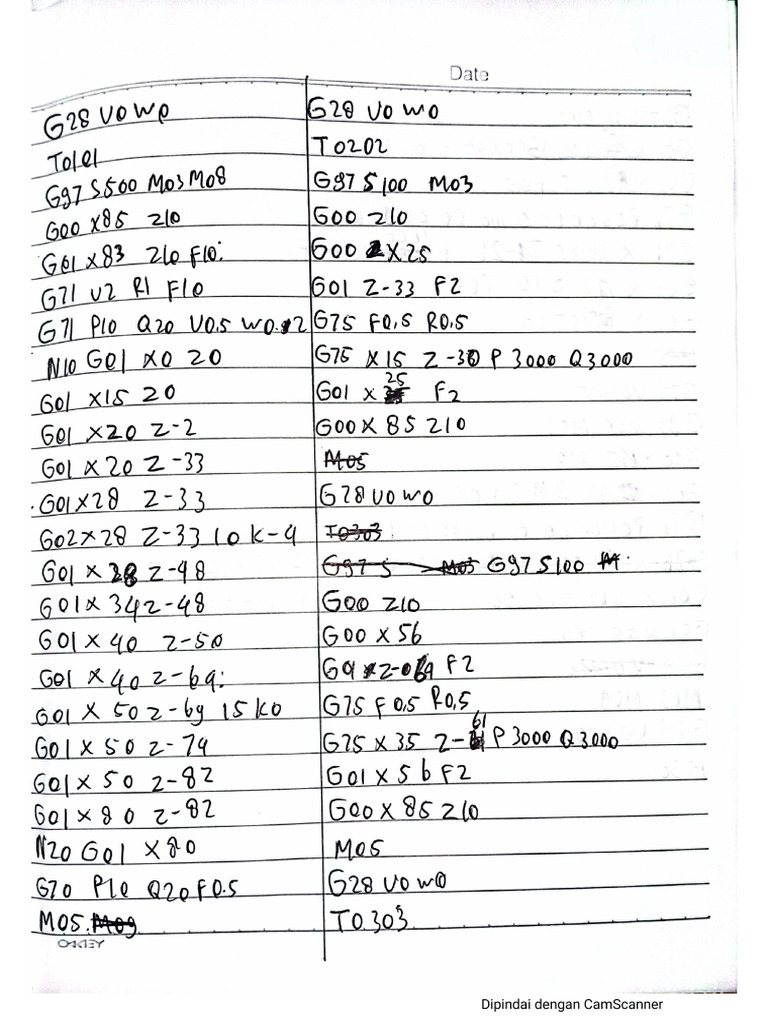 Date
G28 U0 W0
T0101
G97 S500 M03 M08
G00 X85 Z10
G01 X83 Z10 F10.
G71 U2 R1 F10
G71 P10 Q20 U0.5 W0.2
N10 G01 X0 Z0
G01 X15 Z0
G01 X20 Z-2
G01 X20 Z-33
G01 X28 Z-33
G02 X28 Z-33 I0 K-4
G01 X28 Z-48
G01 X34 Z-48
G01 X40 Z-50
G01 X40 Z-69.
G01 X50 Z-69 I5 K0
G01 X50 Z-74
G01 X50 Z-82
G01 X80 Z-82
N20 G01 X80
G70 P10 Q20 F0.5
M05. M09
OAKLEY
G28 U0 W0
T0202
G97 S100 M03
G00 Z10
G00 X25
G01 Z-33 F2
G75 F0,5 R0,5
G75 X15 Z-30 P3000 Q3000
G01 X 25 F2
G00 X 85 Z10
M05
G28 U0 W0
T0303
G97 S M03 G97 S100 M
G00 Z10
G00 X56
Z-069 F2
G75 F0,5 R0,5
G75 X35 Z-61 P3000 Q3000
G01 X56 F2
G00 X85 Z10
M05
G28 U0 W0
T0303
Dipindai dengan CamScanner